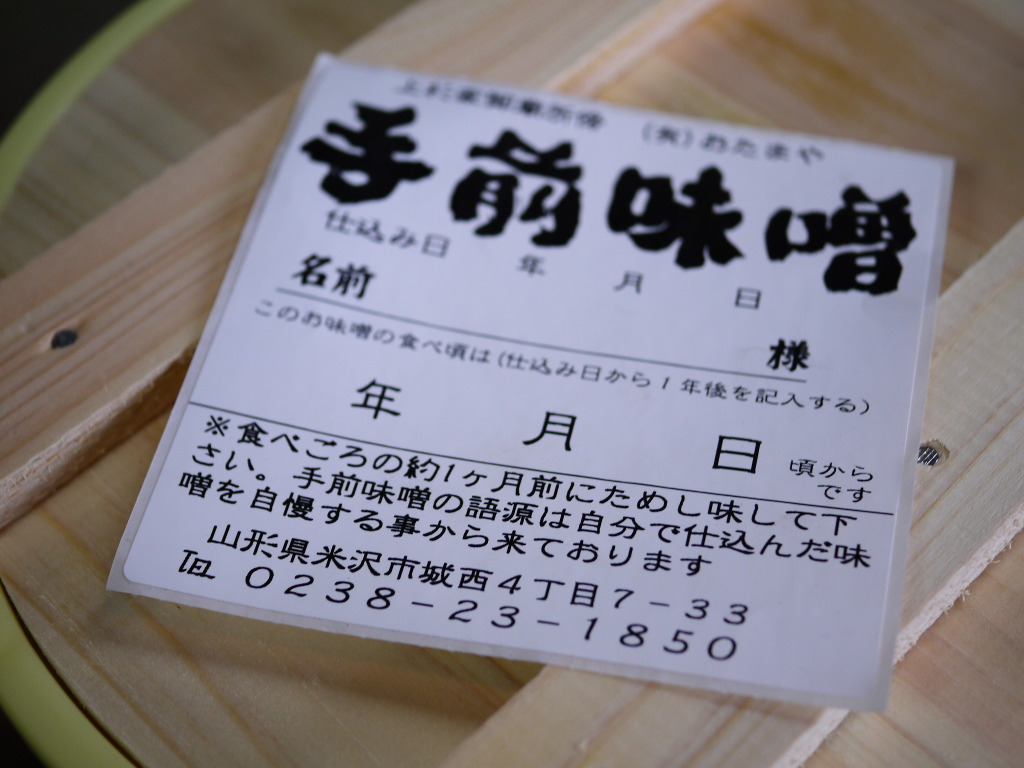 上杉家御菓所跡 (有)おたまや
手前味噌
仕込み日 年 月 日
名前 様
このお味噌の食べ頃は(仕込み日から1年後を記入する)
年 月 日 頃からです
※食べごろの約1ヶ月前にためし味して下
さい。手前味噌の語源は自分で仕込んだ味
噌を自慢する事から来ております
山形県米沢市城西4丁目7-33
℡ 0238-23-1850